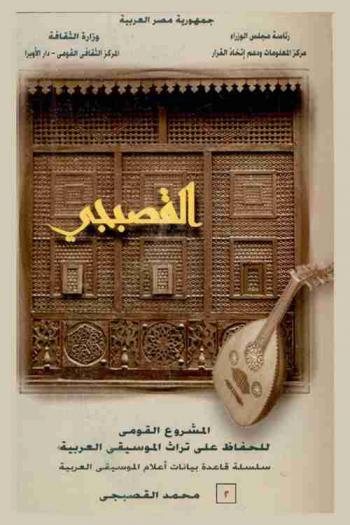 جمهورية مصر العربية
رئاسة مجلس الوزراء
مركز المعلومات ودعم إتخاذ القرار
وزارة الثقافة
المركز الثقافى القومى - دار الأوبرا
القصبجي
المشروع القومى
للحفاظ على تراث الموسيقى العربية
سلسلة قاعدة بيانات أعلام الموسيقى العربية
٢ محمد القصبجى